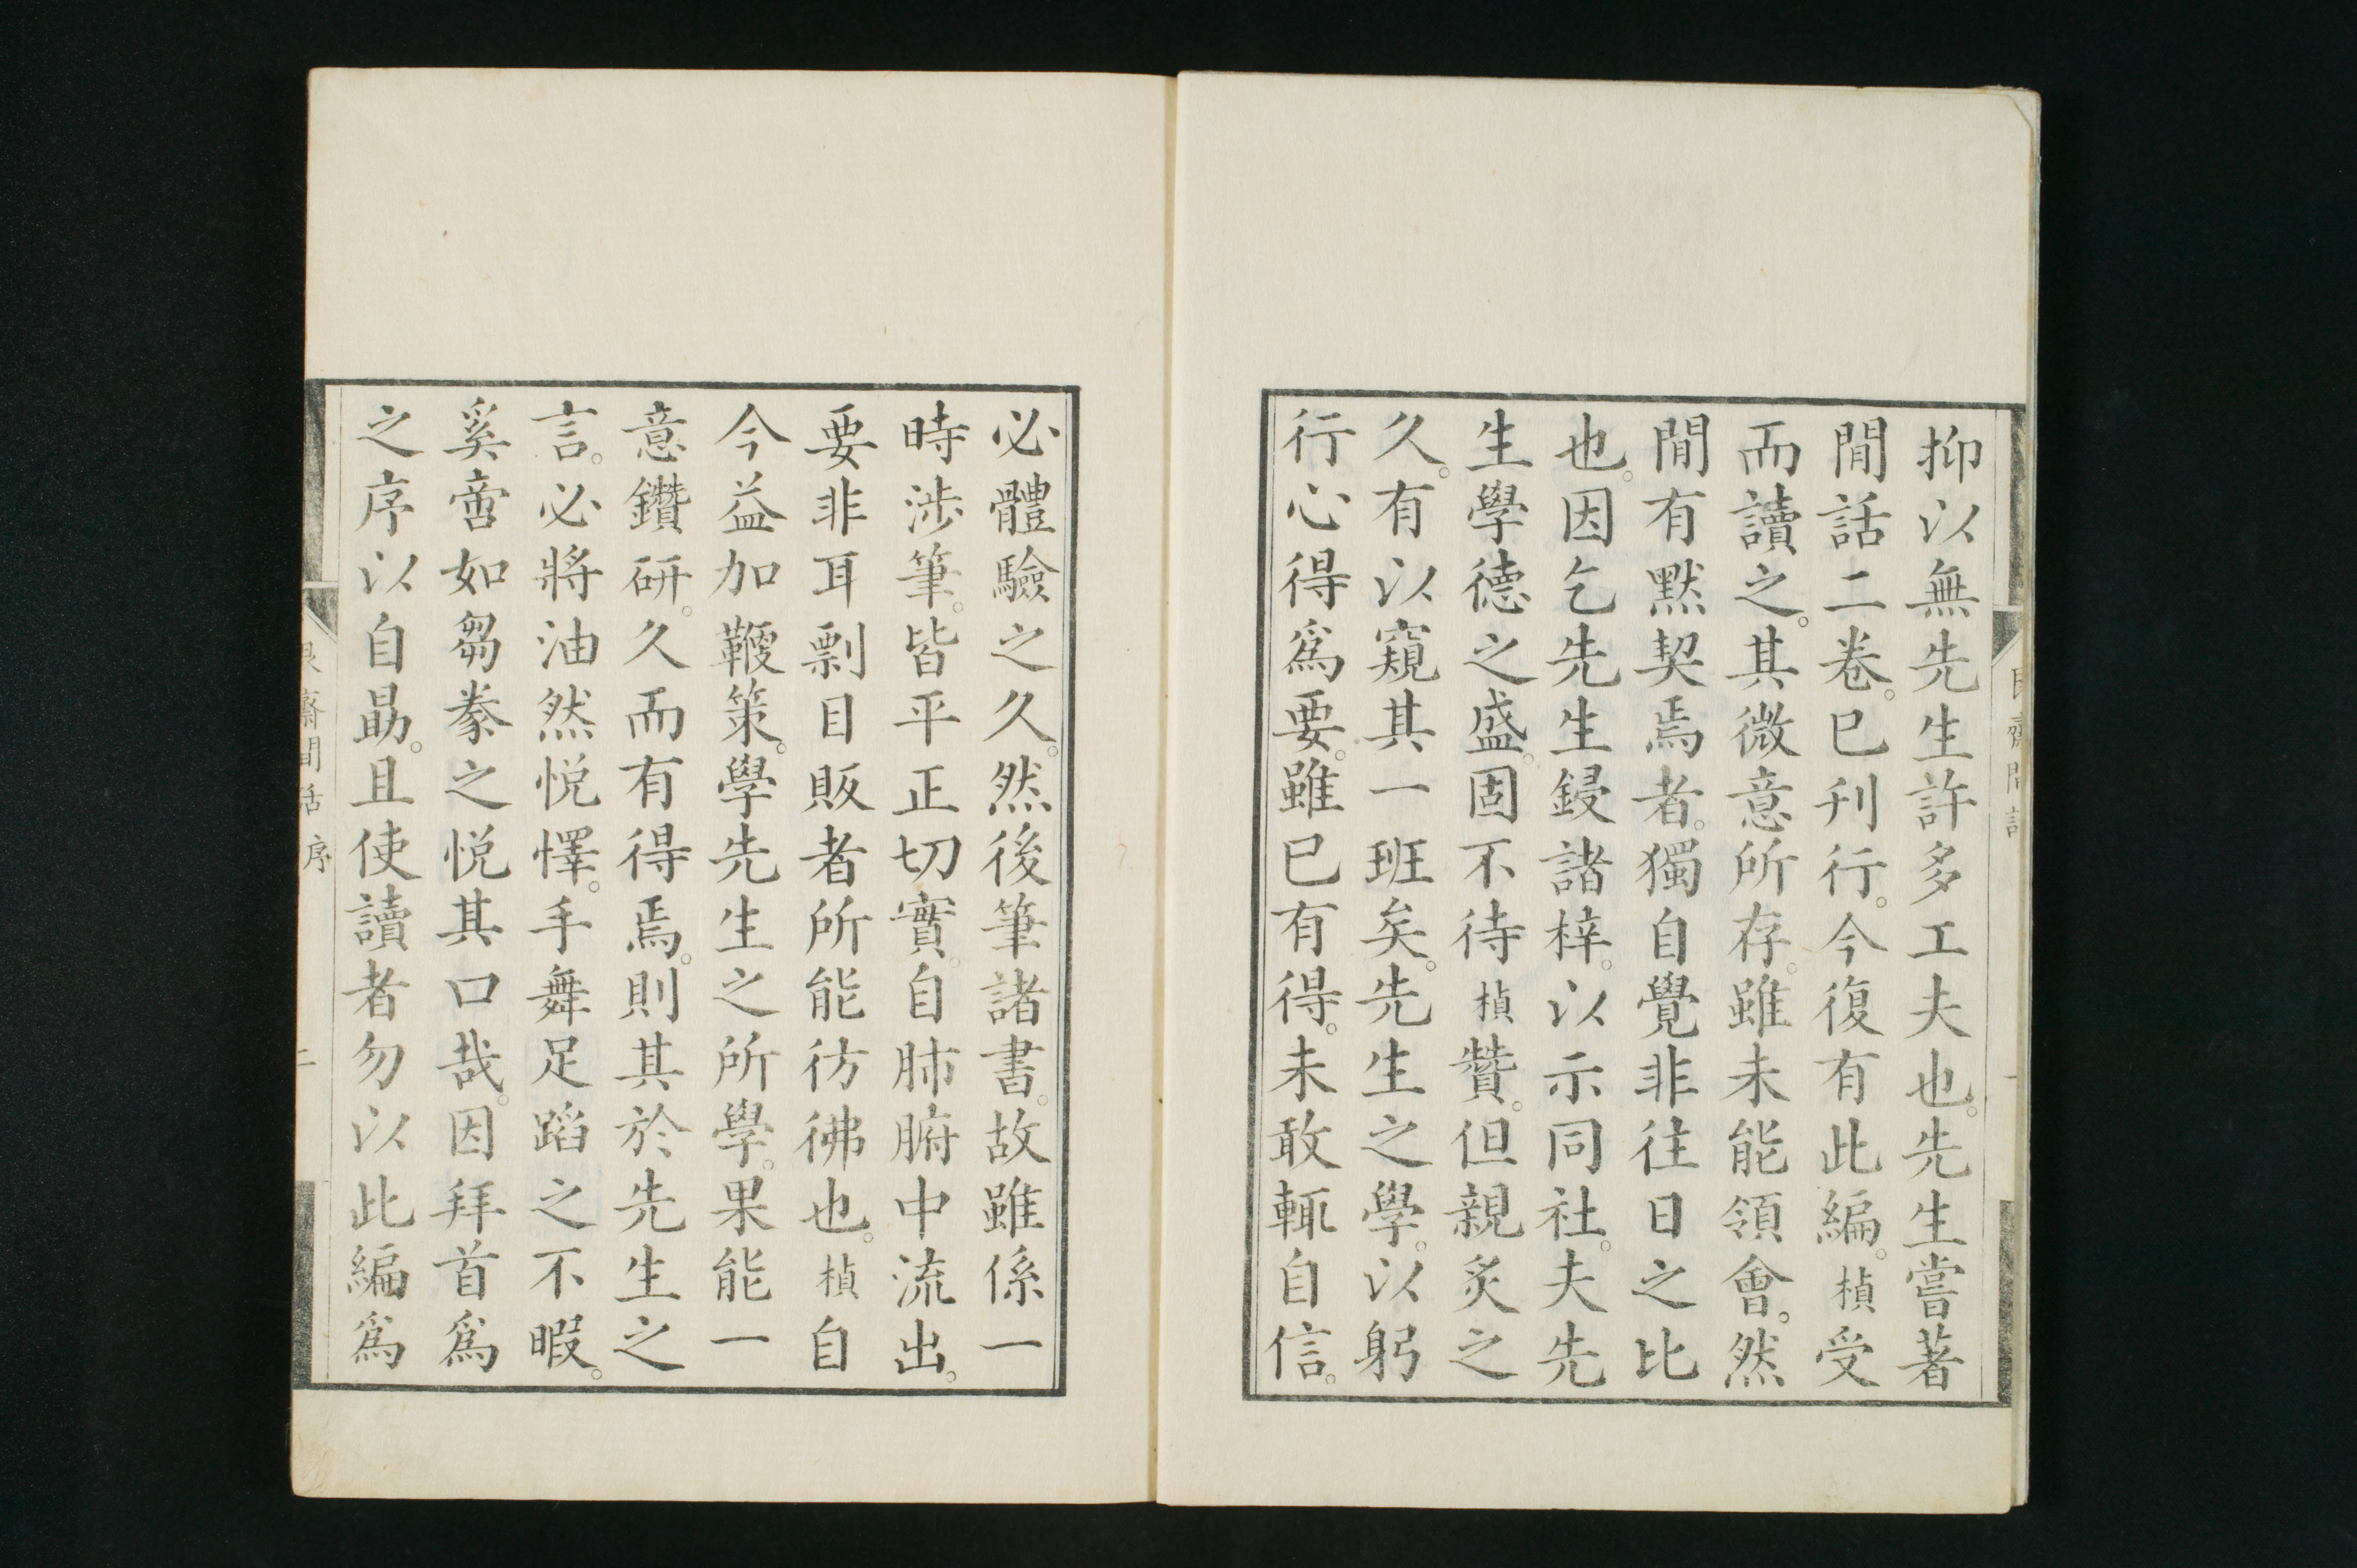 抑以無先生許多工夫也。先生嘗著
閒話二卷。已刊行。今復有此編。楨受
而讀之。其微意所存。雖未能領會。然
閒有默契焉者。獨自覺非往日之比
也。因乞先生鋟諸梓。以示同社。夫先
生學德之盛。固不待楨贊。但親炙之
久。有以窺其一班矣。先生之學。以躬
行心得爲要。雖已有得。未敢輒自信。
必體驗之久。然後筆諸書。故雖係一
時涉筆。皆平正切實。自肺腑中流出。
要非耳剽目販者所能彷彿也。楨自
今益加鞭策。學先生之所學。果能一
意鑽研。久而有得焉。則其於先生之
言。必將油然悅懌。手舞足蹈之不暇。
奚啻如芻豢之悅其口哉。因拜首爲
之序以自勗。且使讀者勿以此編爲
艮齋閒話 序
二